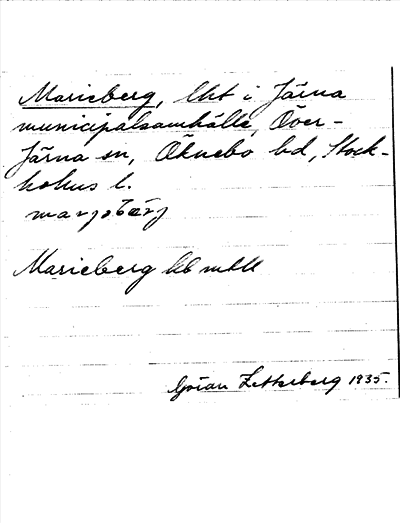 Marieberg, lht i Järna
municipalsamhälle, Över-
Järna sn, Öknebo hd, Stock-
holms l.
marjəbærj
Marieberg
Göran Zetterberg 1935.